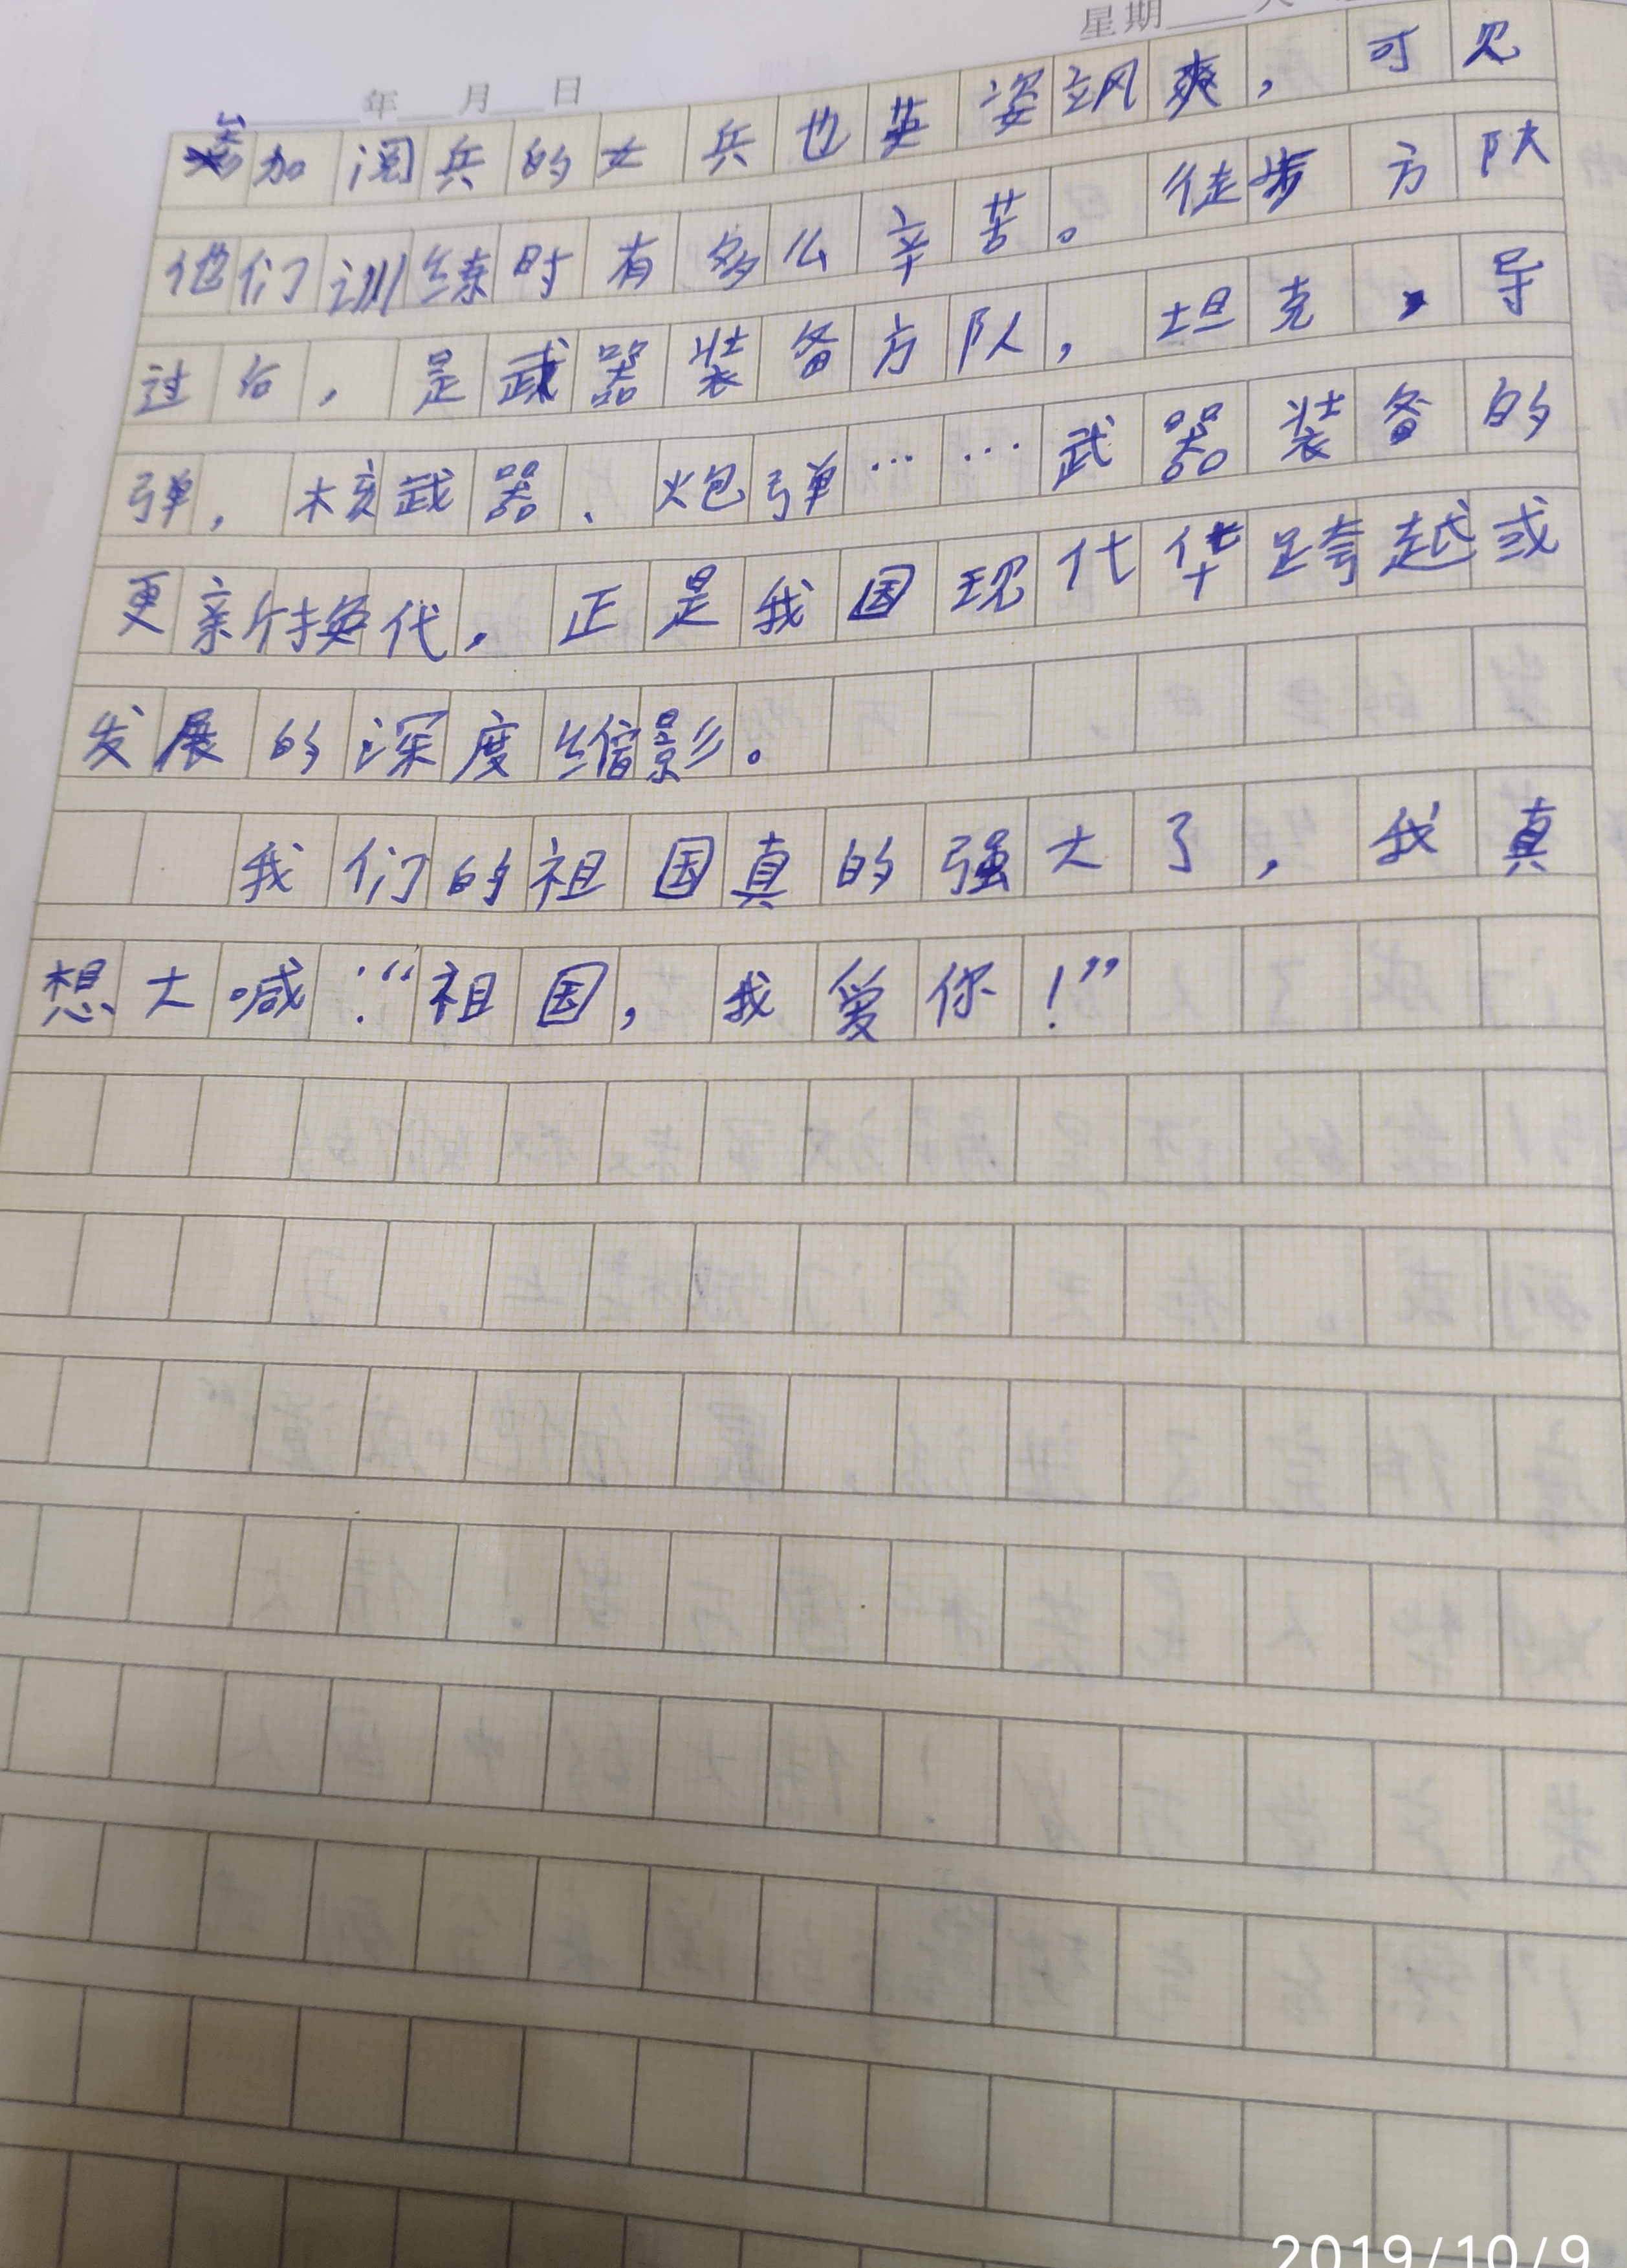 星期 天
年 月 日
参加阅兵的女兵也英姿飒爽，可见
他们训练时有多么辛苦。徒步方队
过后，是武器装备方队，坦克，导
弹，核武器、炮弹……武器装备的
更新换代，正是我国现代华跨越或
发展的深度缩影。
我们的祖国真的强大了，我真
想大喊：“祖国，我爱你！”
2019/10/9